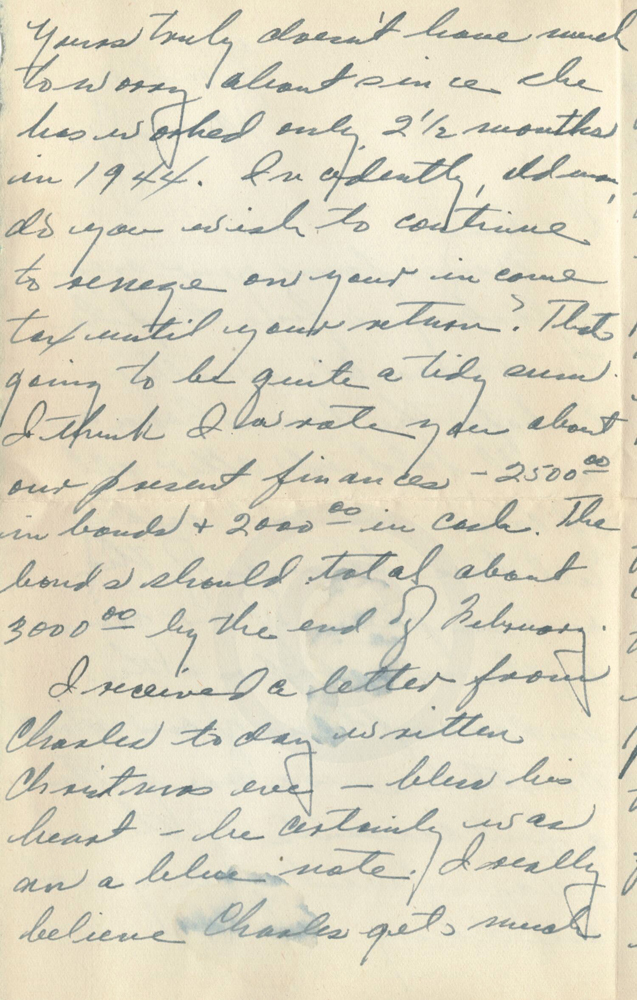 Yours truly doesn't have much
to worry about since she
has worked only 2 1/2 months
in 1944. Incidently, old man,
do you wish to continue
to renege on your income
tax until your return? That's
going to be quite a tidy sum.
I think I wrote you about
our present finances - 2500.00
in bonds + 2000.00 in cash. The
bonds should total about
3000.00 by the end of February.
I received a letter from
Charles today written
Christmas eve - bless his
heart - he certainly was
on a blue note. I really
believe Charles gets much